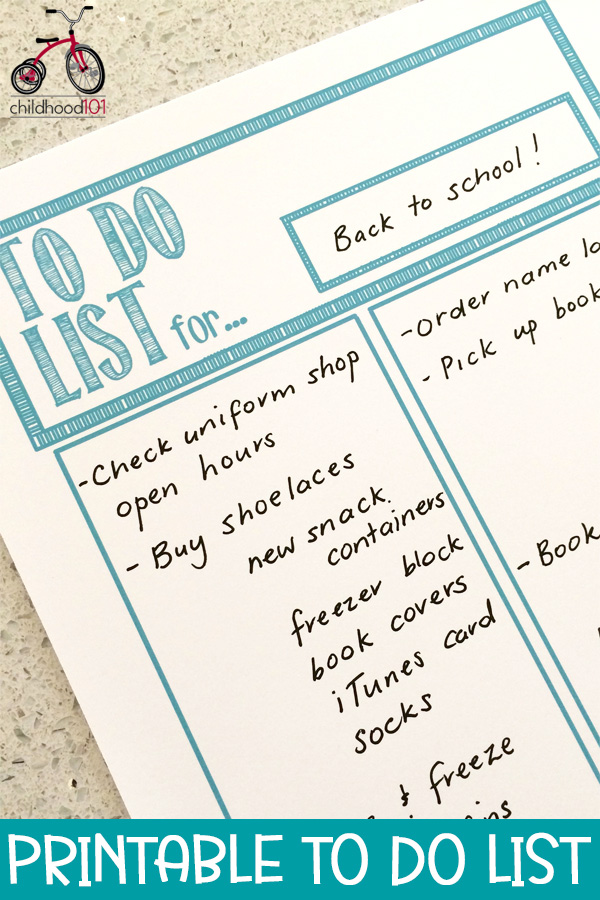 childhood101
TO DO
LIST for...
Back to school!
-Check uniform shop
open hours
- Buy shoelaces
new snack
containers
freezer block
book covers
iTunes card
socks
& freeze
-Order name
- Pick up book
- Book
PRINTABLE TO DO LIST